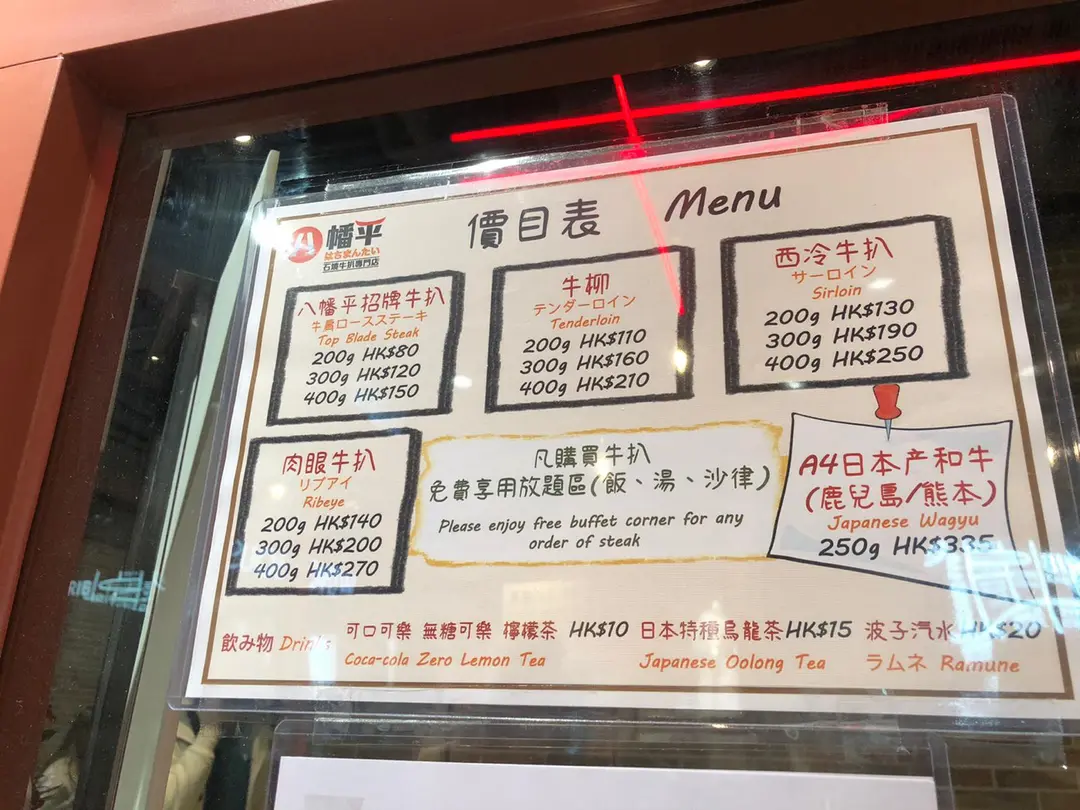 價目表 Menu
八
幡平
はちまんたい
石燒牛扒專門店
八幡平招牌牛扒
牛肩ロースステーキ
Top Blade Steak
200g HK$80
300g HK$120
400g HK$150
牛柳
テンダーロイン
Tenderloin
200g HK$110
300g HK$160
400g HK$210
西冷牛扒
サーロイン
Sirloin
200g HK$130
300g HK$190
400g HK$250
肉眼牛扒
リブアイ
Ribeye
200g HK$140
300g HK$200
400g HK$270
凡購買牛扒
免費享用放題區(飯、湯、沙律)
Please enjoy free buffet corner for any
order of steak
A4日本产和牛
(鹿兒島/熊本)
Japanese Wagyu
250g HK$335
飲み物 Drinks
可口可樂 無糖可樂 檸檬茶 HK$10
Coca-cola Zero Lemon Tea
日本特種烏龍茶HK$15
Japanese Oolong Tea
波子汽水 HK$20
ラムネ Ramune